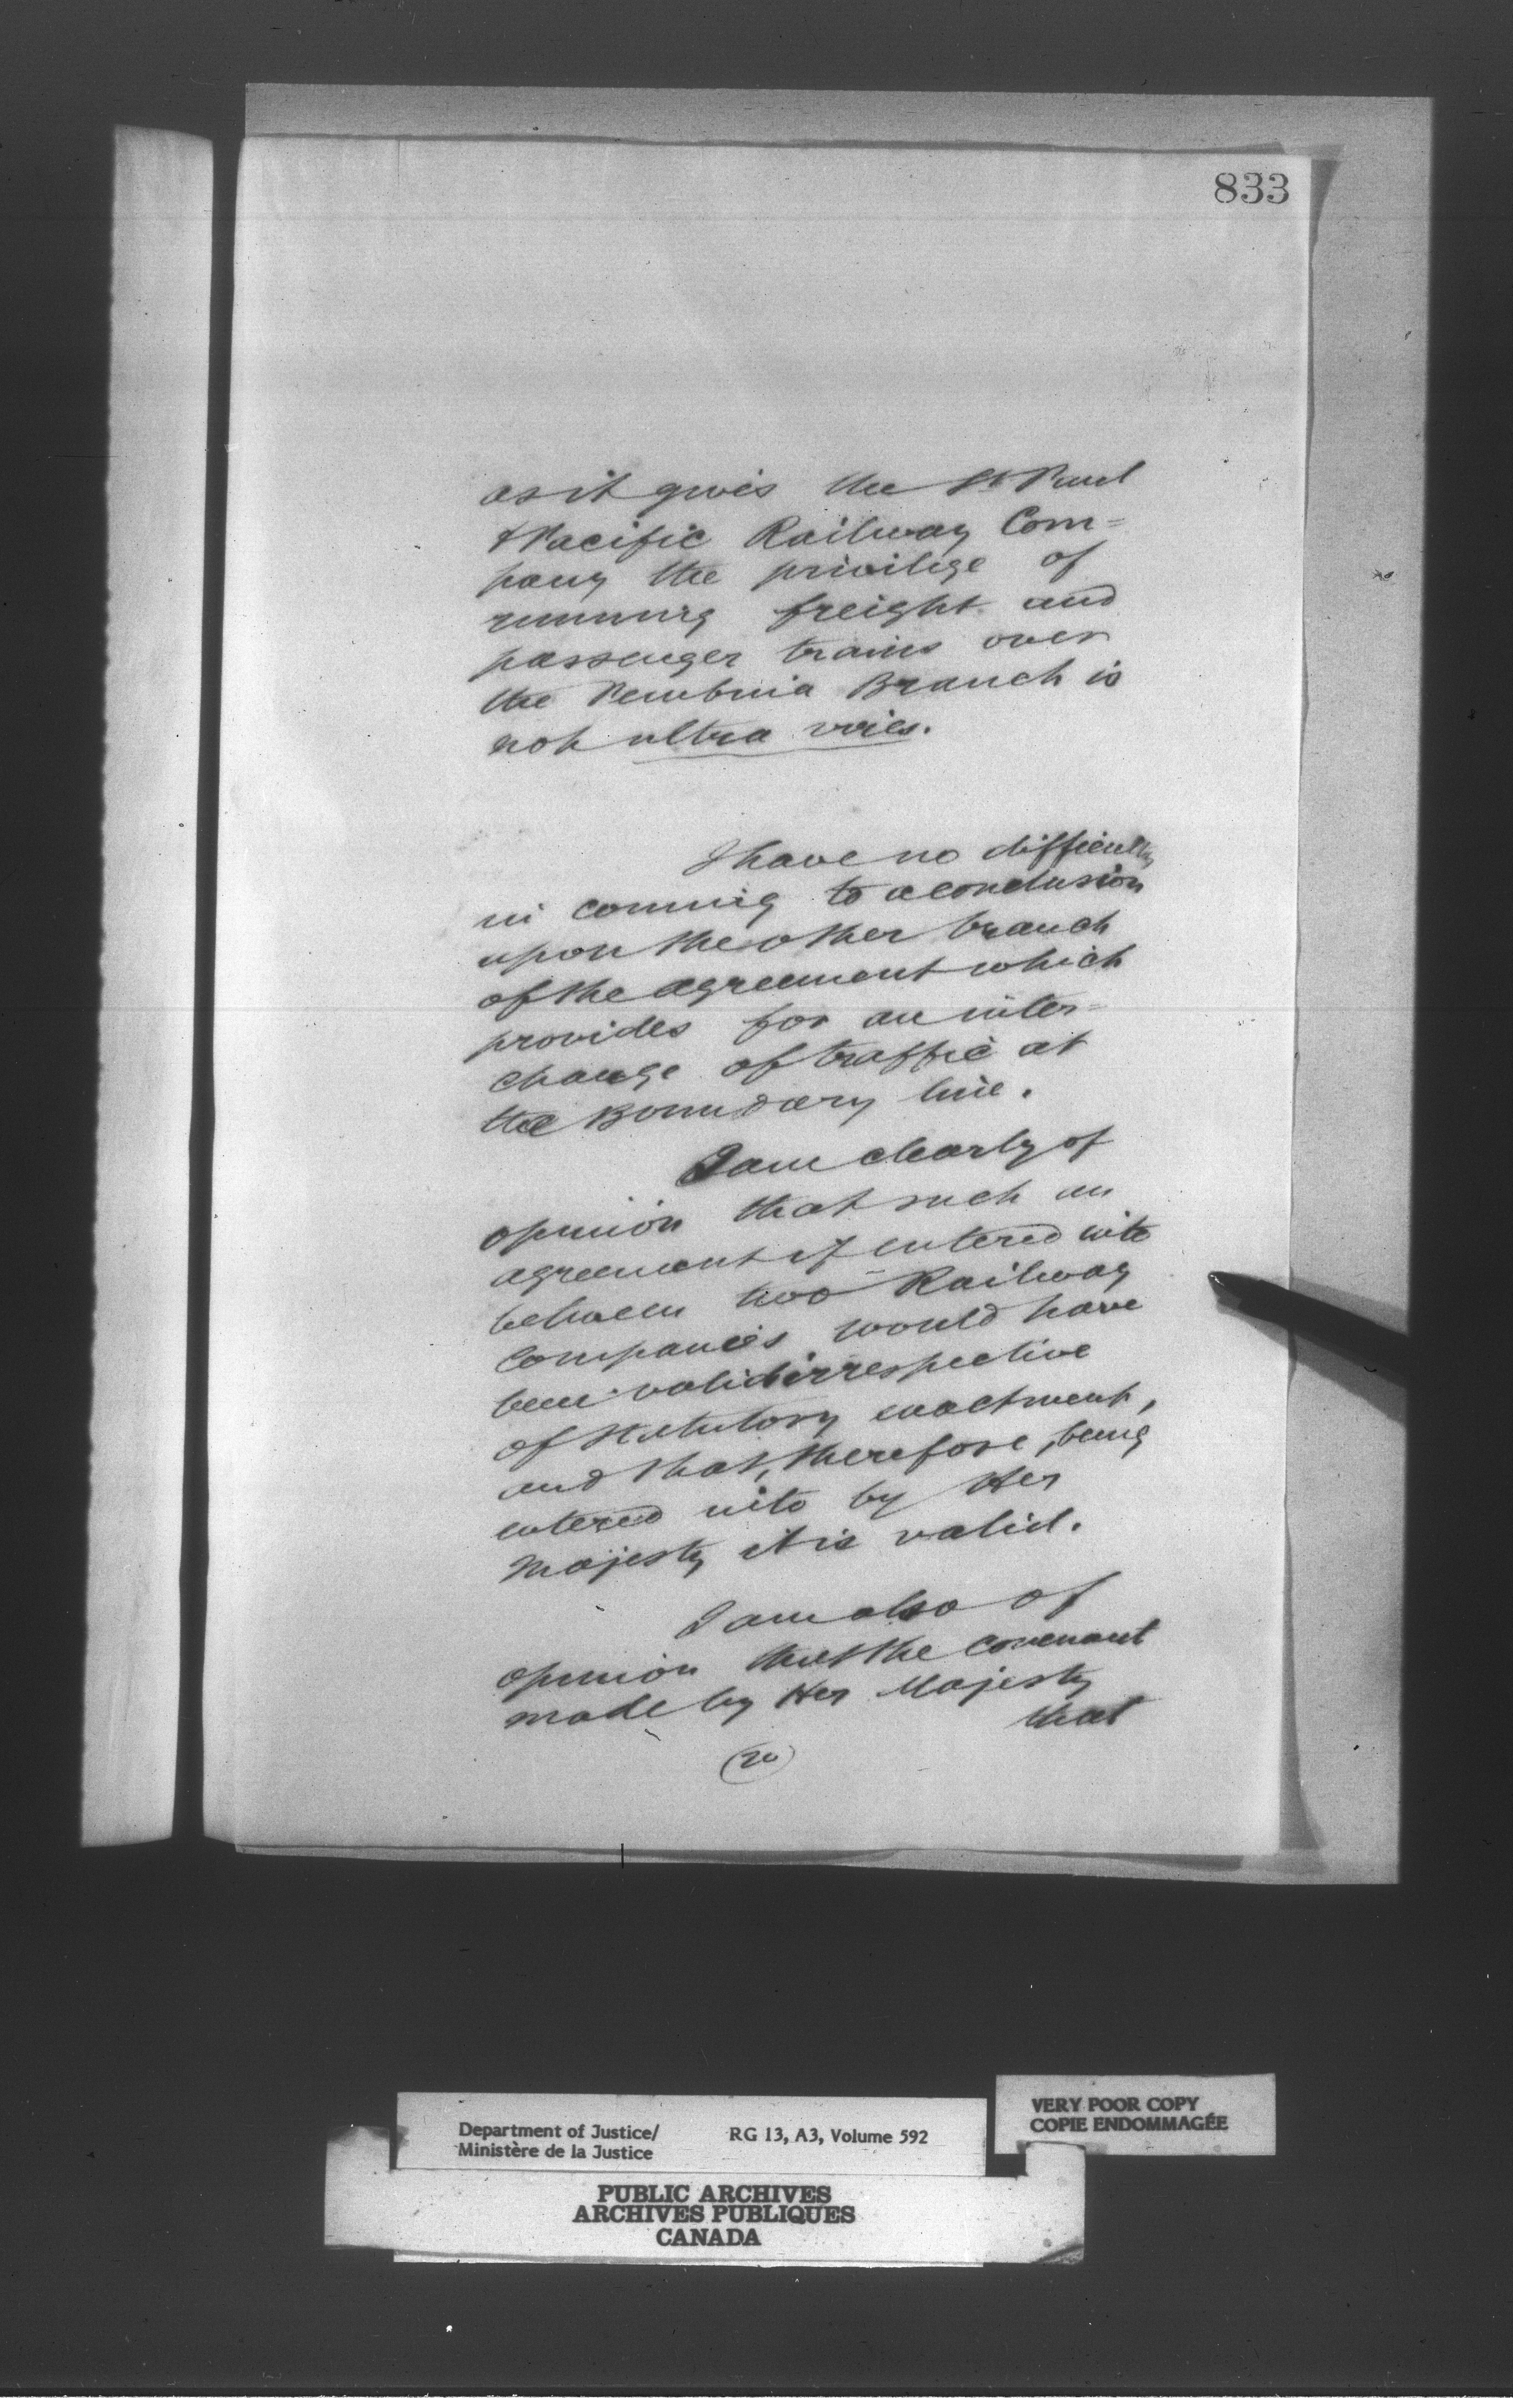 833
as it gives the St Paul
& Pacific Railway Com=
pany the privilige of
running freight and
passenger trains over
the Pembina Branch is
not ultra vires.
I have no difficulty
in coming to a conclusion
upon the other branch
of the agreement which
provides for an inter=
change of traffic at
the Boundary line.
I am clearly of
opinion that such an
agreement if entered into
between two Railway
Companies would have
been valid irrespective
of statutory enactment,
and that, therefore, being
entered into by Her
Majesty it is valid.
I am also of
opinion that the covenant
made by Her Majesty
that
(20)
Department of Justice/
Ministère de la Justice
RG 13, A3, Volume 592
VERY POOR COPY
COPIE ENDOMMAGÉE
PUBLIC ARCHIVES
ARCHIVES PUBLIQUES
CANADA